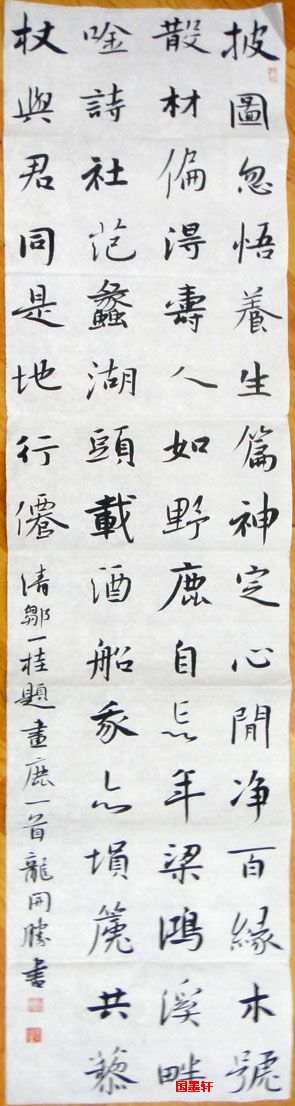 披圖忽悟養生篇神定心閒净百緣木號
散材偏得壽人如野鹿自忘年梁鴻溪畔
唫詩社范蠡湖頭載酒船我亦塤篪共藜
杖與君同是地行僊
清鄒一桂題畫鹿一首龍開勝書
国墨轩